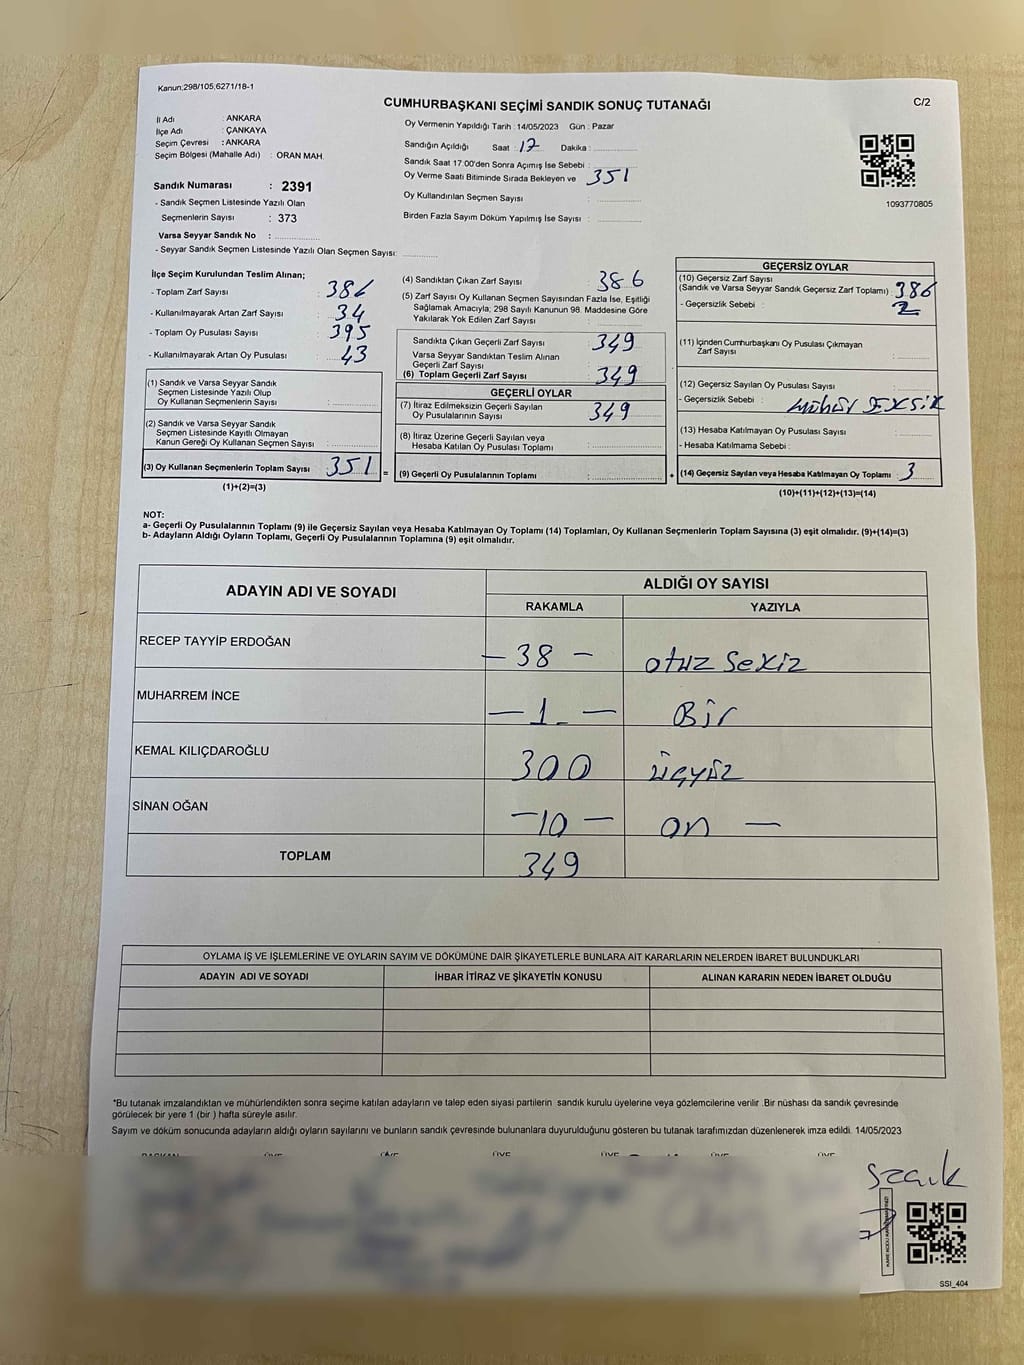 Kanun;298/105;6271/18-1
CUMHURBAŞKANI SEÇİMİ SANDIK SONUÇ TUTANAĞI
C/2
İl Adı : ANKARA
İlçe Adı : ÇANKAYA
Seçim Çevresi : ANKARA
Seçim Bölgesi (Mahalle Adı) : ORAN MAH.
Sandık Numarası : 2391
- Sandık Seçmen Listesinde Yazılı Olan
Seçmenlerin Sayısı : 373
Varsa Seyyar Sandık No :
- Seyyar Sandık Seçmen Listesinde Yazılı Olan Seçmen Sayısı:
Oy Vermenin Yapıldığı Tarih : 14/05/2023 Gün : Pazar
Sandığın Açıldığı Saat : 17 Dakika :
Sandık Saat 17.00'den Sonra Açımış İse Sebebi :
Oy Verme Saati Bitiminde Sırada Bekleyen ve 351
Oy Kullandırılan Seçmen Sayısı :
Birden Fazla Sayım Döküm Yapılmış İse Sayısı :
1093770805
İlçe Seçim Kurulundan Teslim Alınan;
- Toplam Zarf Sayısı : 386
- Kullanılmayarak Artan Zarf Sayısı : 34
- Toplam Oy Pusulası Sayısı : 395
- Kullanılmayarak Artan Oy Pusulası : 43
(1) Sandık ve Varsa Seyyar Sandık
Seçmen Listesinde Yazılı Olup
Oy Kullanan Seçmenlerin Sayısı :
(2) Sandık ve Varsa Seyyar Sandık
Seçmen Listesinde Kayıtlı Olmayan
Kanun Gereği Oy Kullanan Seçmen Sayısı :
(3) Oy Kullanan Seçmenlerin Toplam Sayısı : 351
(1)+(2)=(3)
(4) Sandıktan Çıkan Zarf Sayısı : 386
(5) Zarf Sayısı Oy Kullanan Seçmen Sayısından Fazla İse, Eşitliği
Sağlamak Amacıyla; 298 Sayılı Kanunun 98. Maddesine Göre
Yakılarak Yok Edilen Zarf Sayısı :
Sandıkta Çıkan Geçerli Zarf Sayısı : 349
Varsa Seyyar Sandıktan Teslim Alınan
Geçerli Zarf Sayısı :
(6) Toplam Geçerli Zarf Sayısı : 349
GEÇERLİ OYLAR
(7) İtiraz Edilmeksizin Geçerli Sayılan
Oy Pusulalarının Sayısı : 349
(8) İtiraz Üzerine Geçerli Sayılan veya
Hesaba Katılan Oy Pusulası Toplamı :
= (9) Geçerli Oy Pusulalarının Toplamı :
GEÇERSİZ OYLAR
(10) Geçersiz Zarf Sayısı
(Sandık ve Varsa Seyyar Sandık Geçersiz Zarf Toplamı) : 386
- Geçersizlik Sebebi : 2
(11) İçinden Cumhurbaşkanı Oy Pusulası Çıkmayan
Zarf Sayısı :
(12) Geçersiz Sayılan Oy Pusulası Sayısı :
- Geçersizlik Sebebi : mühür EKSİK
(13) Hesaba Katılmayan Oy Pusulası Sayısı :
- Hesaba Katılmama Sebebi :
+ (14) Geçersiz Sayılan veya Hesaba Katılmayan Oy Toplamı : 3
(10)+(11)+(12)+(13)=(14)
NOT:
a- Geçerli Oy Pusulalarının Toplamı (9) ile Geçersiz Sayılan veya Hesaba Katılmayan Oy Toplamı (14) Toplamları, Oy Kullanan Seçmenlerin Toplam Sayısına (3) eşit olmalıdır. (9)+(14)=(3)
b- Adayların Aldığı Oyların Toplamı, Geçerli Oy Pusulalarının Toplamına (9) eşit olmalıdır.
ADAYIN ADI VE SOYADI
ALDIĞI OY SAYISI
RAKAMLA YAZIYLA
RECEP TAYYİP ERDOĞAN – 38 – otuz sekiz
MUHARREM İNCE – 1. – Bir
KEMAL KILIÇDAROĞLU 300 üçyüz
SİNAN OĞAN – 10 – on –
TOPLAM 349
OYLAMA İŞ VE İŞLEMLERİNE VE OYLARIN SAYIM VE DÖKÜMÜNE DAİR ŞİKAYETLERLE BUNLARA AİT KARARLARIN NELERDEN İBARET BULUNDUKLARI
ADAYIN ADI VE SOYADI İHBAR İTİRAZ VE ŞİKAYETİN KONUSU ALINAN KARARIN NEDEN İBARET OLDUĞU
*Bu tutanak imzalandıktan ve mühürlendikten sonra seçime katılan adayların ve talep eden siyasi partilerin sandık kurulu üyelerine veya gözlemcilerine verilir .Bir nüshası da sandık çevresinde
görülecek bir yere 1 (bir ) hafta süreyle asılır.
Sayım ve döküm sonucunda adayların aldığı oyların sayılarını ve bunların sandık çevresinde bulunanlara duyurulduğunu gösteren bu tutanak tarafımızdan düzenlenerek imza edildi. 14/05/2023
BAŞKAN ÜYE ÜYE ÜYE ÜYE ÜYE ÜYE
SSI_404